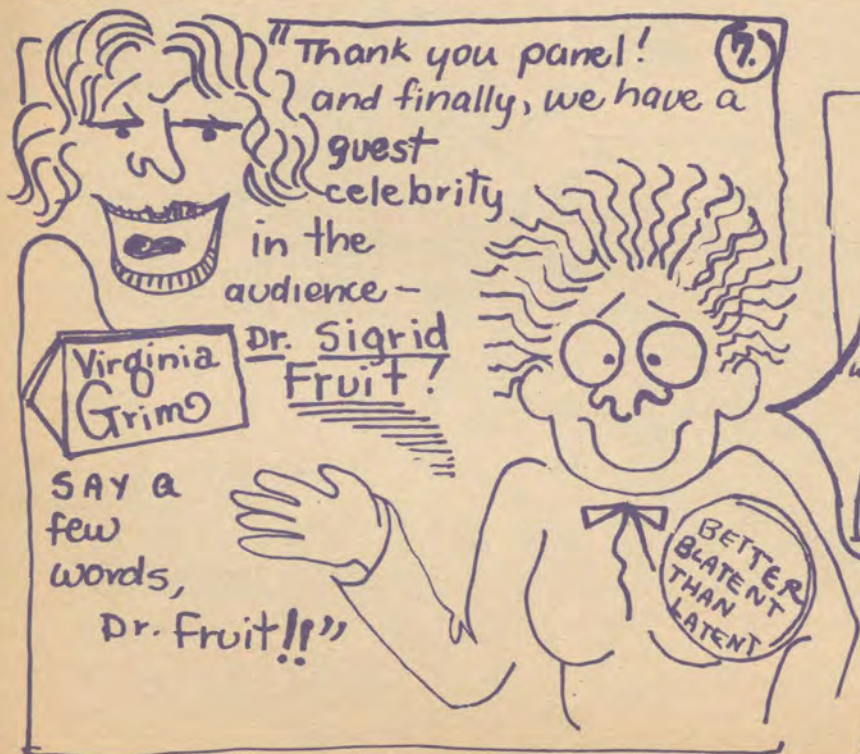 "Thank you panel!
7.
and finally, we have a
guest
celebrity
in the
audience —
Dr. Sigrid
Fruit!
Virginia
Grim
SAY a
few
words,
Dr. Fruit!!"
BETTER
BLATENT
THAN
LATENT